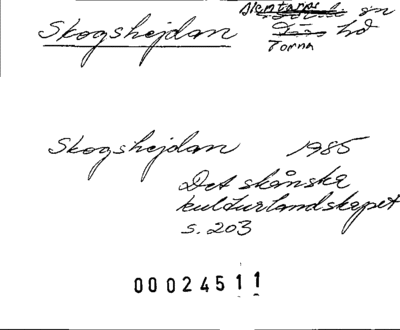 Skogshejdan
sn
hd
Torna
Skogshejdan 1985
Det skånska
kulturlandskapet
s. 203
00024511